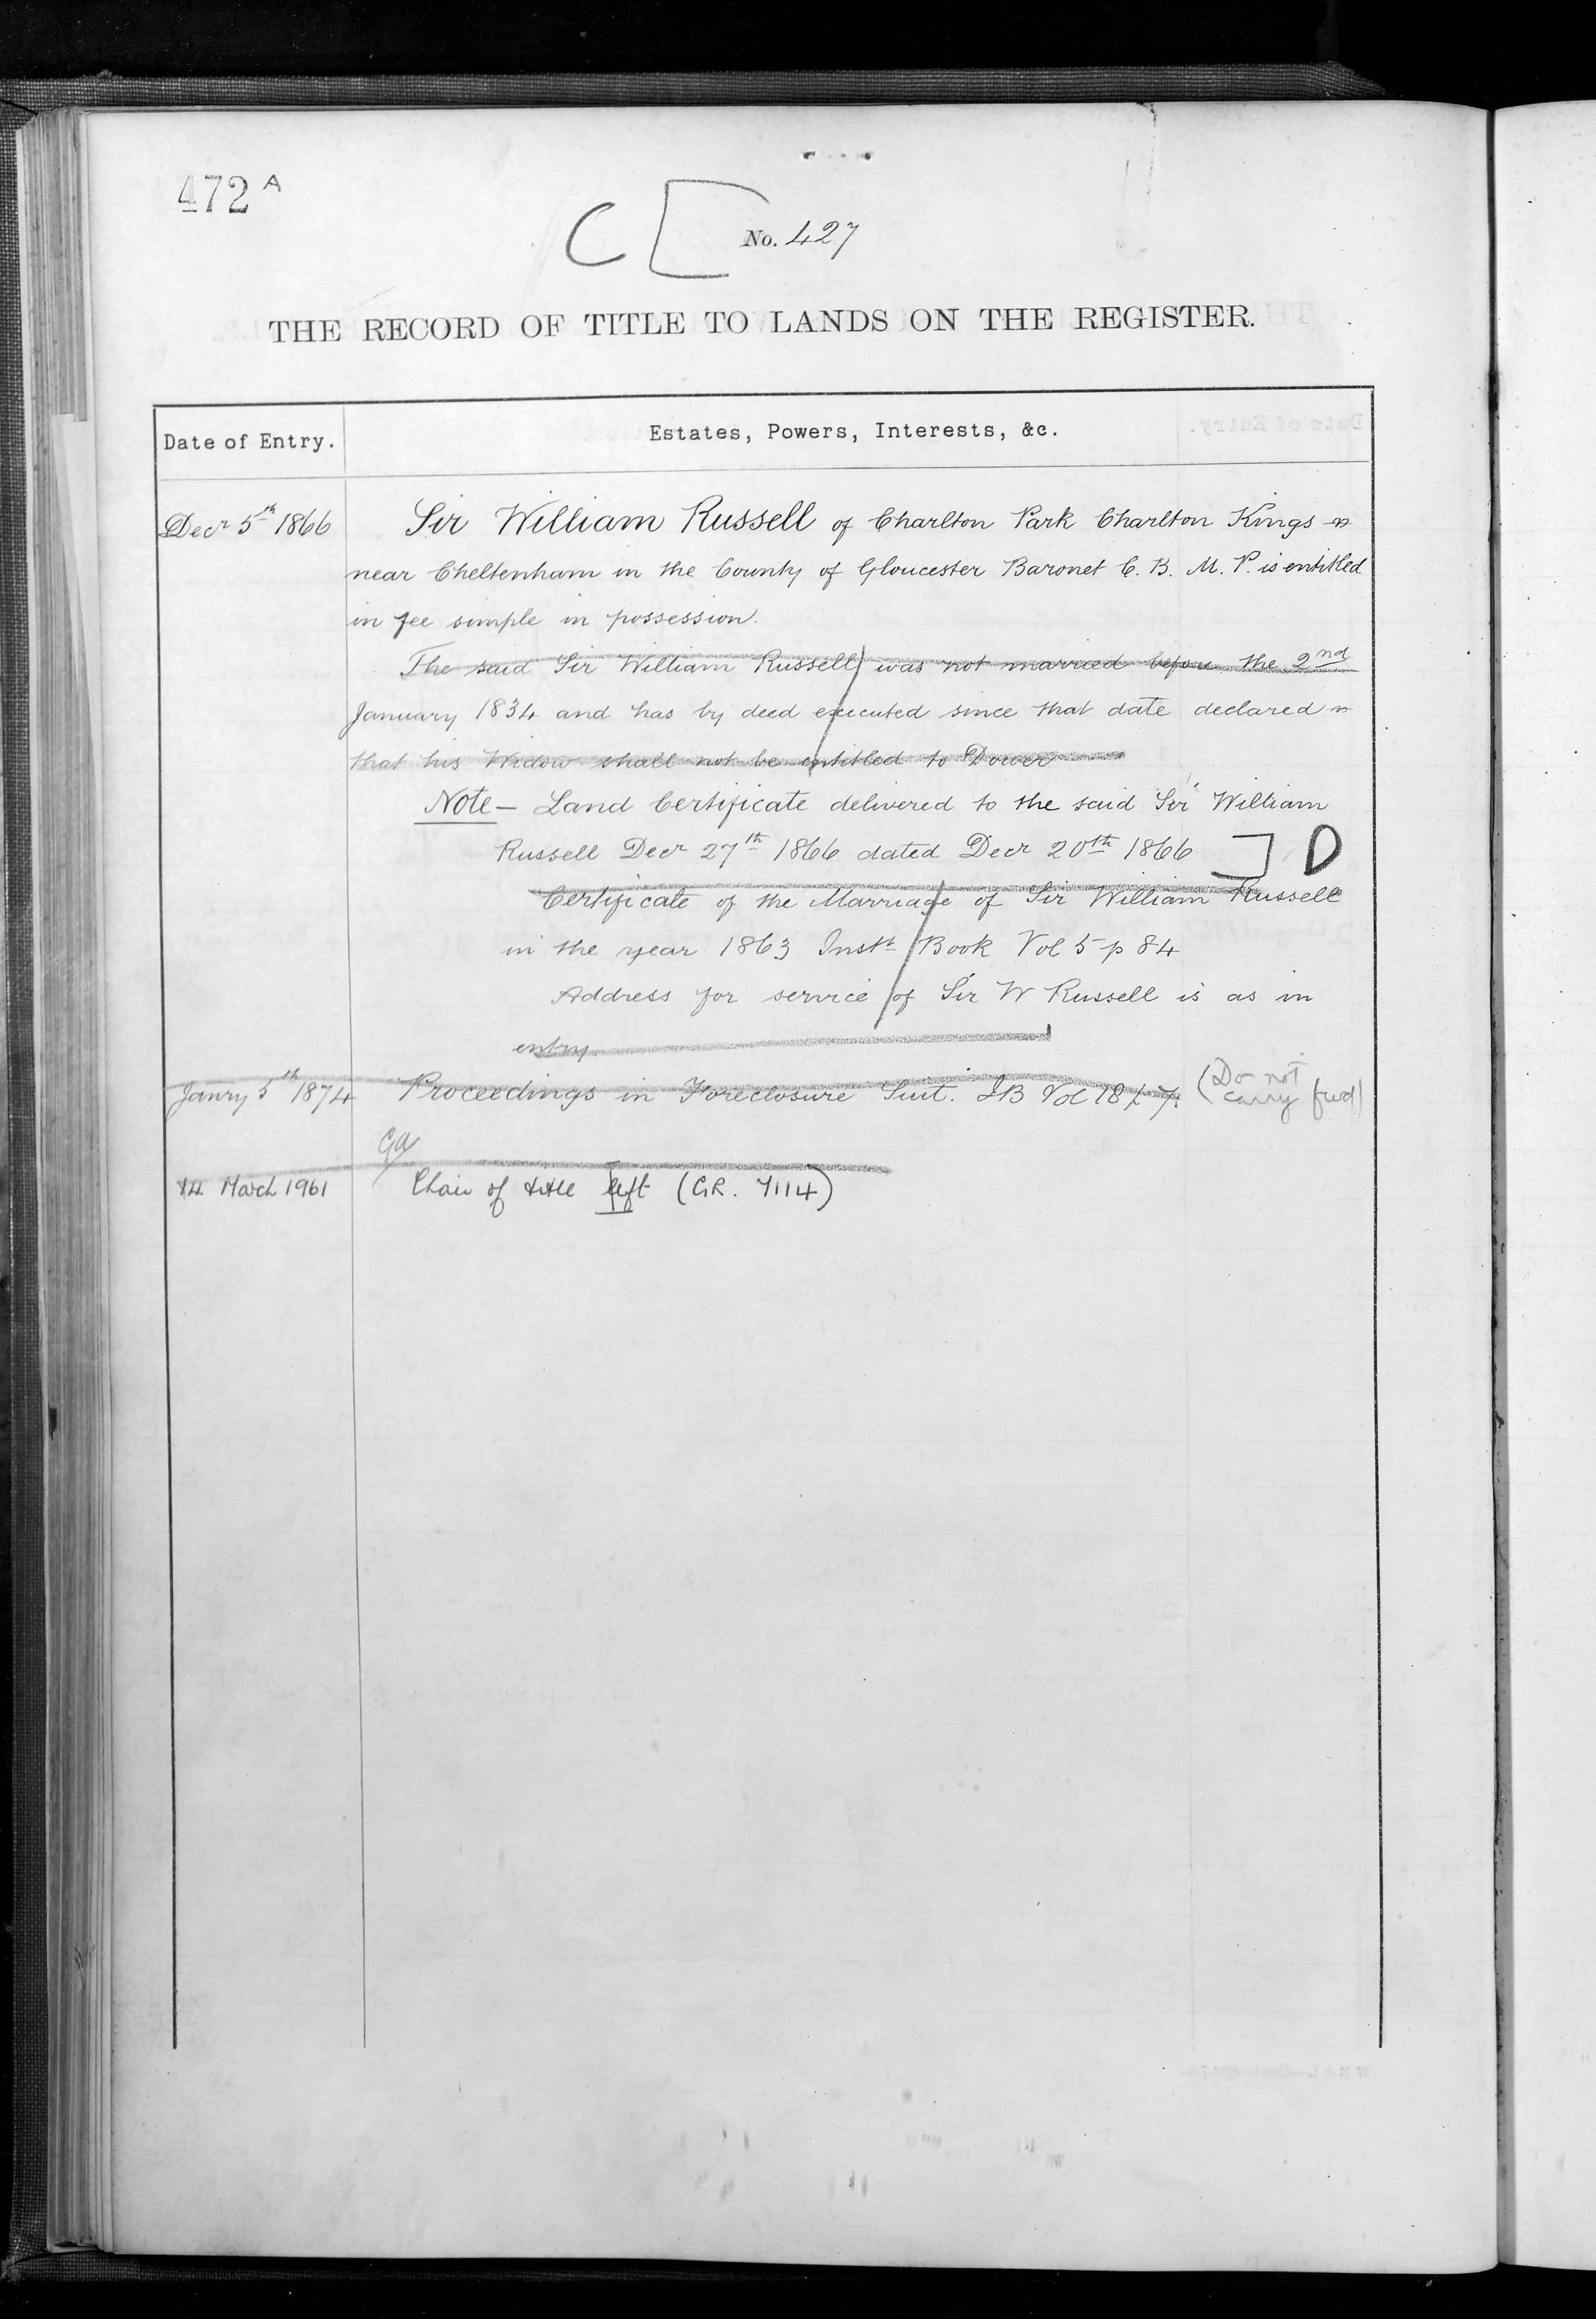 472 A
C [ No. 427
THE RECORD OF TITLE TO LANDS ON THE REGISTER.
Date of Entry.
Estates, Powers, Interests, &c.
Decr 5th 1866
Sir William Russell of Charlton Park Charlton Kings
near Cheltenham in the County of Gloucester Baronet C. B. M. P. is entitled
in fee simple in possession.
The said Sir William Russell was not married before the 2nd
January 1834 and has by deed executed since that date declared
that his Widow shall not be entitled to Dower
Note – Land Certificate delivered to the said Sir William
Russell Decr 27th 1866 dated Decr 20th 1866 ] D
Certificate of the Marriage of Sir William Russell
in the year 1863 Instt Book Vol 5 p 84
Address for service of Sir W Russell is as in
entry
Janry 5th 1874
Proceedings in Foreclosure Suit. IB Vol 18
(Do not
carry fwd)
14 March 1961
of title left (GR. 7114)